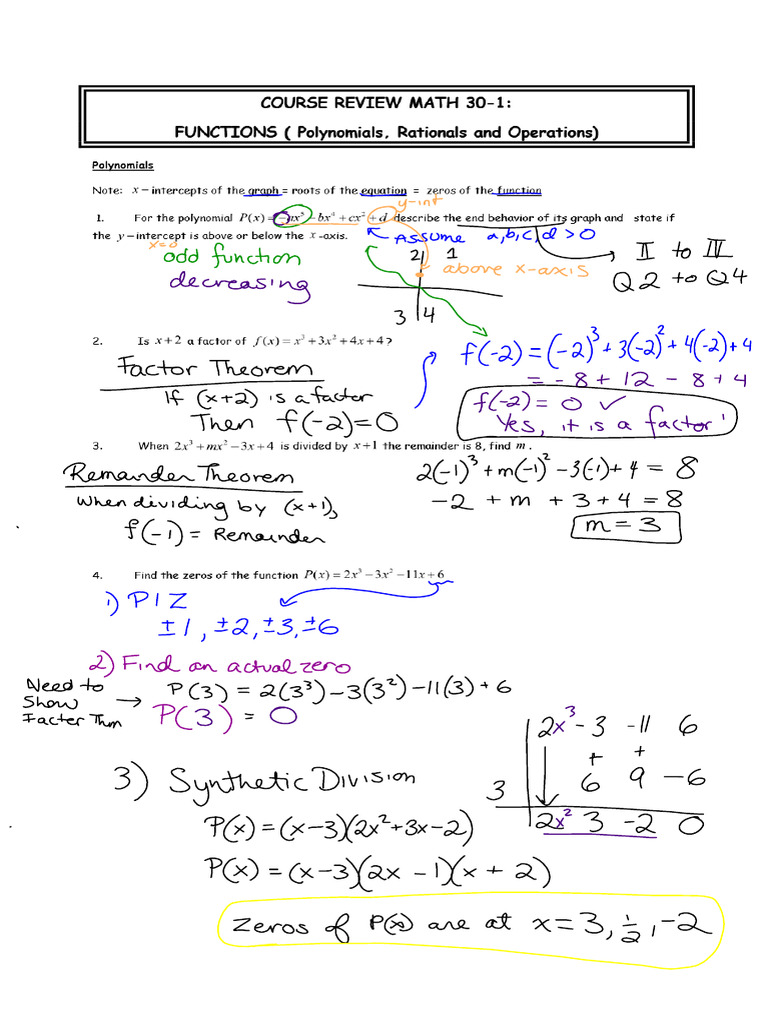 COURSE REVIEW MATH 30-1:
FUNCTIONS ( Polynomials, Rationals and Operations)
Polynomials
Note: x – intercepts of the graph = roots of the equation = zeros of the function
y-int
1. For the polynomial P(x) = –ax⁵ – bx⁴ + cx² + d describe the end behavior of its graph and state if
the y – intercept is above or below the x -axis.
x=0
Assume a,b,c,d > 0
odd function
decreasing
2 1
3 4
above x-axis
II to IV
Q2 to Q4
2. Is x + 2 a factor of f(x) = x³ + 3x² + 4x + 4 ?
Factor Theorem
If (x+2) is a factor
Then f(-2)=0
f(-2) = (-2)³ + 3(-2)² + 4(-2) + 4
= -8 + 12 - 8 + 4
f(-2) = 0 ✓
Yes, it is a factor!
3. When 2x³ + mx² – 3x + 4 is divided by x + 1 the remainder is 8, find m .
Remainder Theorem
When dividing by (x+1),
f(-1) = Remainder
2(-1)³ + m(-1)² - 3(-1) + 4 = 8
-2 + m + 3 + 4 = 8
m = 3
4. Find the zeros of the function P(x) = 2x³ – 3x² – 11x + 6
1) PIZ
±1, ±2, ±3, ±6
2) Find an actual zero
Need to
Show
Facter Thm
→ P(3) = 2(3³) - 3(3²) - 11(3) + 6
P(3) = 0
3) Synthetic Division
2x³ -3 -11 6
+ +
3 6 9 -6
2x² 3 -2 0
P(x) = (x-3)(2x²+3x-2)
P(x) = (x-3)(2x - 1)(x + 2)
Zeros of P(x) are at x = 3, 1/2, -2